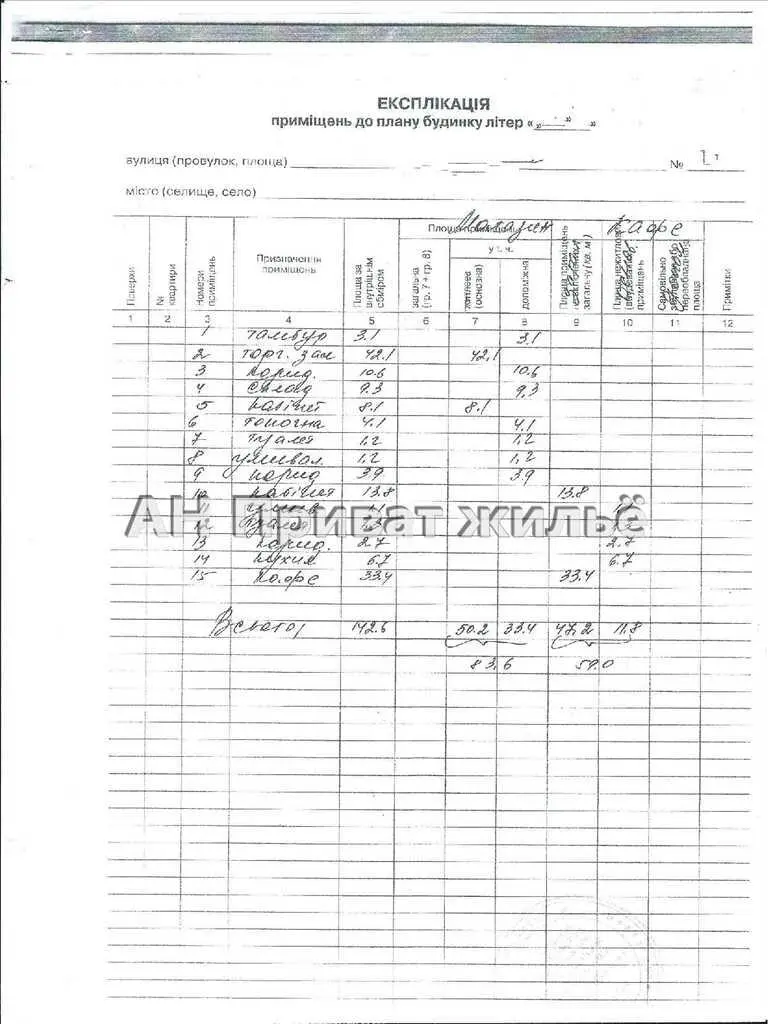 ЕКСПЛІКАЦІЯ
приміщень до плану будинку літер « „ ” »
вулиця (провулок, площа) № 1
місто (селище, село)
Магазин Кафе
Поверхи
№ квартири
Номери приміщень
Призначення приміщень
Площа за внутрішнім обміром
Площа
загальна (гр. 7 + гр. 8)
у т. ч.
житлова (основна)
допоміжна
Площа приміщень загальну (кв. м)
приміщень
Самовільно
площа
Примітки
1 2 3 4 5 6 7 8 9 10 11 12
1 тамбур 3.1 3.1
2 торг. зал 42.1 42.1
3 корид. 10.6 10.6
4 склад 9.3 9.3
5 кабінет 8.1 8.1
6 топочна 4.1 4.1
7 туалет 1,2 1,2
8 умивал. 1,2 1,2
9 корид 3.9 3.9
10 кабінет 13.8 13.8
11
12
АН Приват жильё
13 корид. 2.7 2.7
14 кухня 6.7 6.7
15 кафе 33.4 33.4
Всього, 142.6 50.2 33.4 47,2 11.8
83,6 59.0